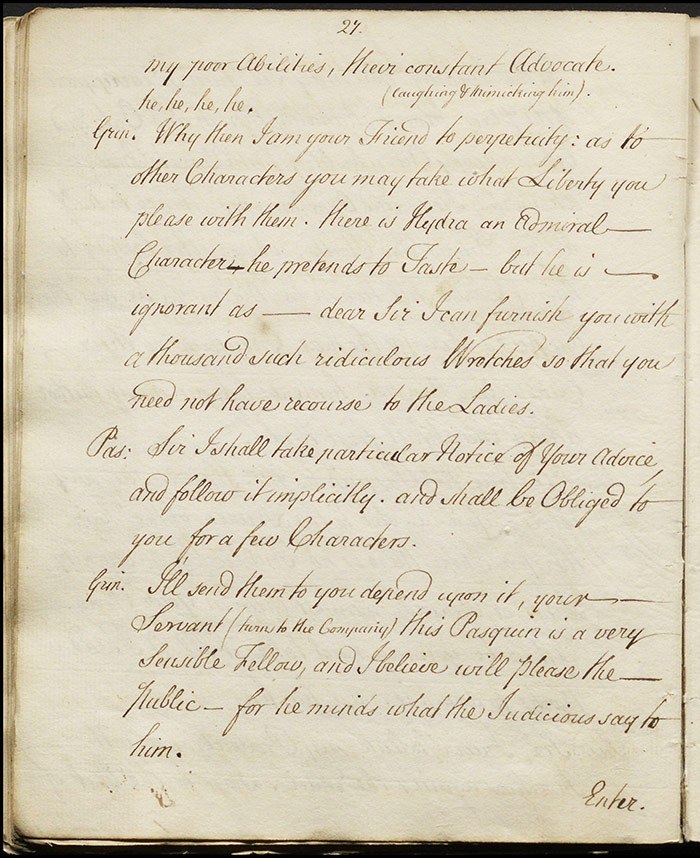 27.
my poor Abilities, their constant Advocate.
he, he, he, he. (laughing & mimicking him).
Grin. Why then I am your Friend to perpetuity: as to
other Characters you may take what Liberty you
please with them. there is Hydra an Admiral —
Character, he pretends to Taste — but he is —
ignorant as — dear Sir I can furnish you with
a thousand such ridiculous Wretches so that you
need not have recourse to the Ladies.
Pas: Sir I shall take particular Notice of Your Advice,
and follow it implicitly. and shall be Obliged to
you for a few Characters.
Grin. I'll send them to you depend upon it, your —
Servant (turn to the Company) this Pasquin is a very
Sensible Fellow, and I believe will please the —
Public — for he minds what the Judicious say to
him.
Enter.